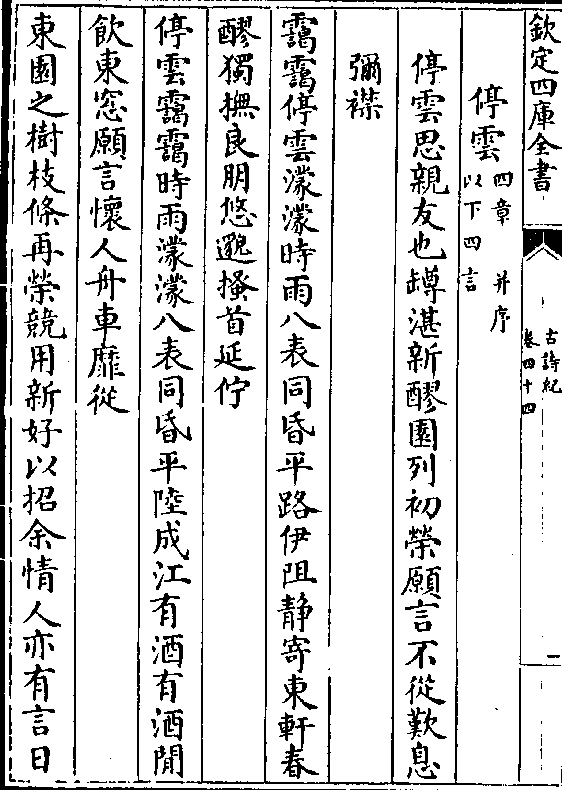 欽定四庫全書
古詩紀
卷四十四
一
停雲四章 并序
以下四言
停雲思親友也罇湛新醪園列初榮願言不從歎息
彌襟
靄靄停雲濛濛時雨八表同昏平路伊阻静寄東軒春
醪獨撫良朋悠邈搔首延佇
停雲靄靄時雨濛濛八表同昏平陸成江有酒有酒閒
飲東窓願言懷人舟車靡從
東園之樹枝條再榮競用新好以招余情人亦有言日